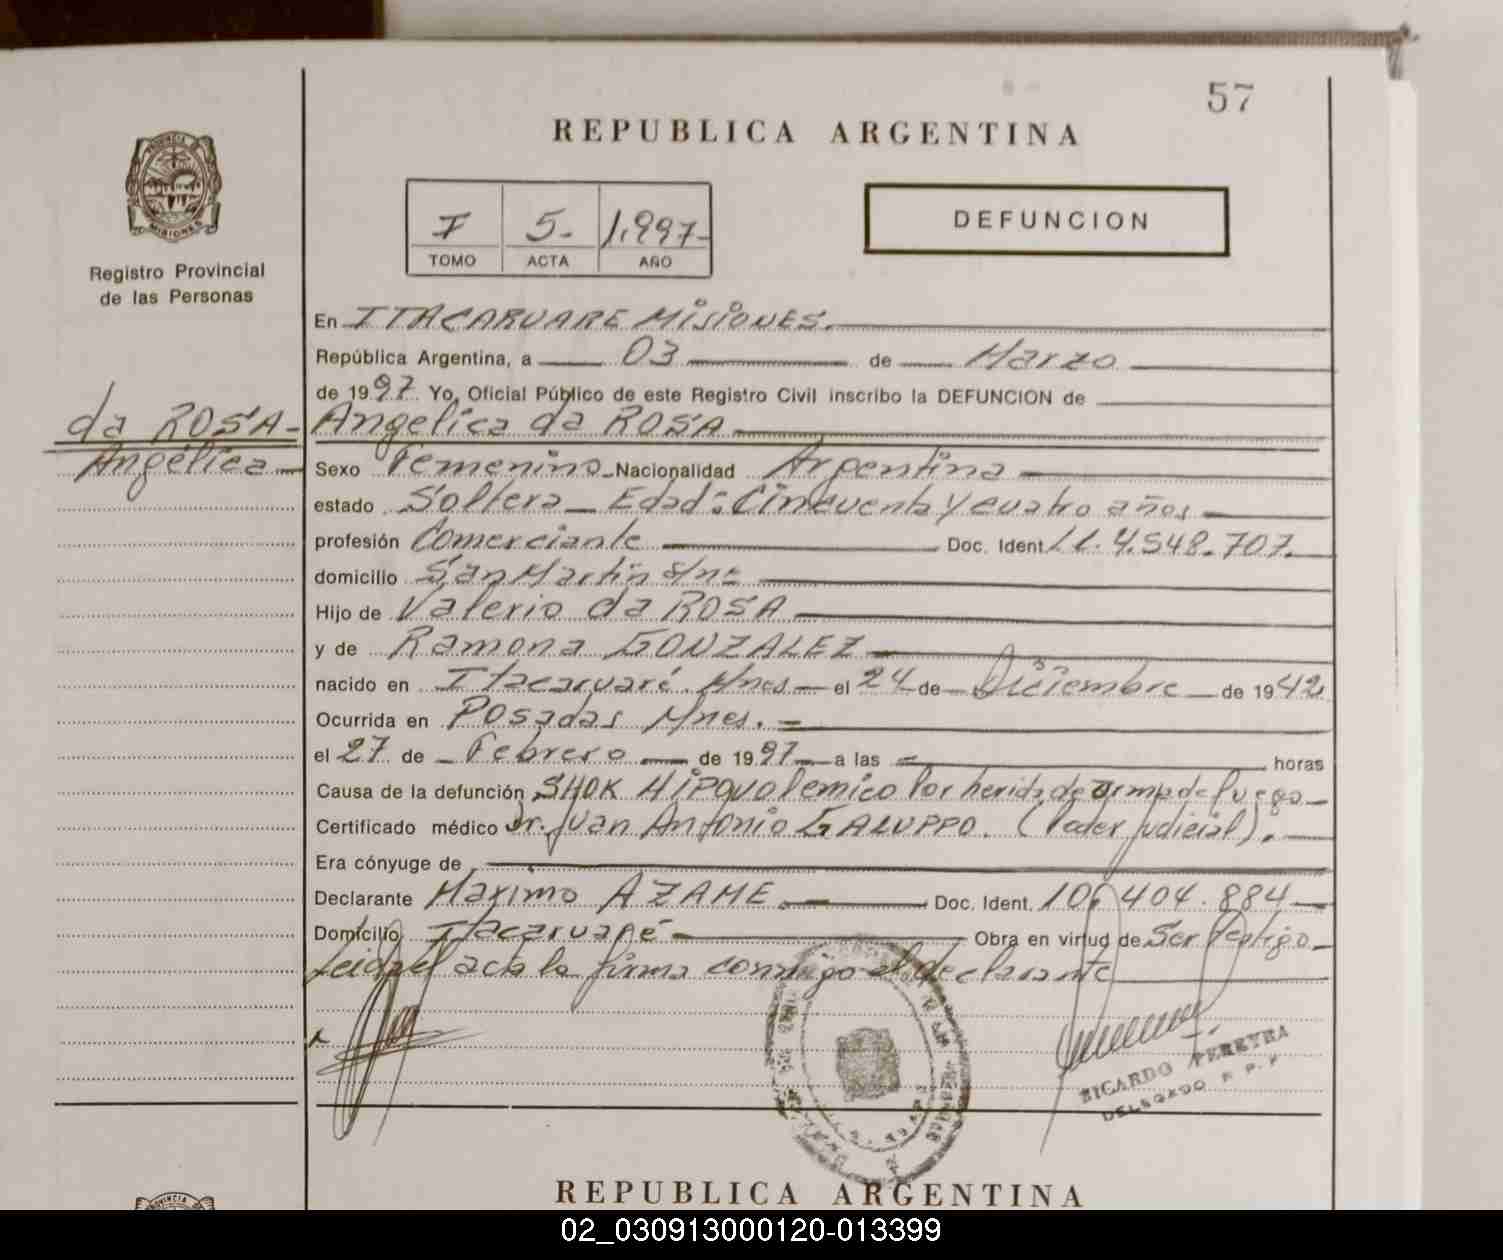 57
REPUBLICA ARGENTINA
PROVINCIA DE
MISIONES
Registro Provincial
de las Personas
I 5- 1.997-
TOMO ACTA AÑO
DEFUNCION
En ITACARUARE MISIONES.
República Argentina, a 03 de Marzo
de 1997. Yo, Oficial Público de este Registro Civil inscribo la DEFUNCION de
da ROSA-
Angélica
Angelica da ROSA
Sexo Femenino Nacionalidad Argentina
estado Soltera - Edad: Cincuenta y cuatro años
profesión Comerciante Doc. Ident. LC. 4.548.707.
domicilio San Martin s/nº
Hijo de Valerio da ROSA
y de Ramona GONZALEZ
nacido en Itacaruaré. Mnes - el 24 de Diciembre de 1942
Ocurrida en Posadas Mnes. =
el 27 de Febrero de 1997 a las = horas
Causa de la defunción SHOK HIPOVOLEMICO Por herida de arma de fuego
Certificado médico Dr. Juan Antonio GALUPPO. (Poder Judicial).
Era cónyuge de
Declarante Maximo AZAME. Doc. Ident. 10.404.884
Domicilio Itacaruaré Obra en virtud de Ser Testigo
Leida el acta la firma conmigo el declarante
RICARDO PEREYRA
DELEGADO R. P. P.
REPUBLICA ARGENTINA
PROVINCIA
02_030913000120-013399